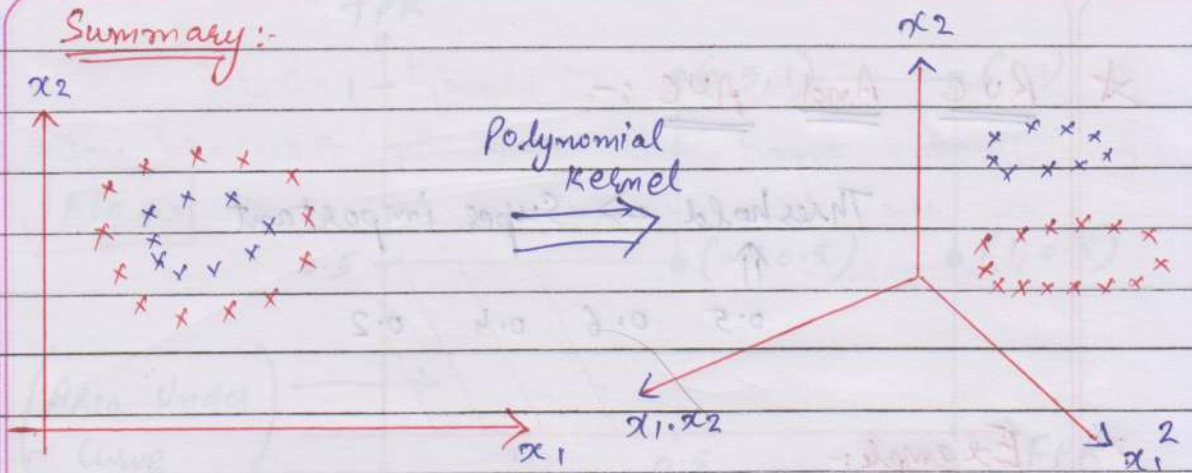 Summary:-
x2
x2
Polynomial
Kernel
x1.x2
x1
x1²